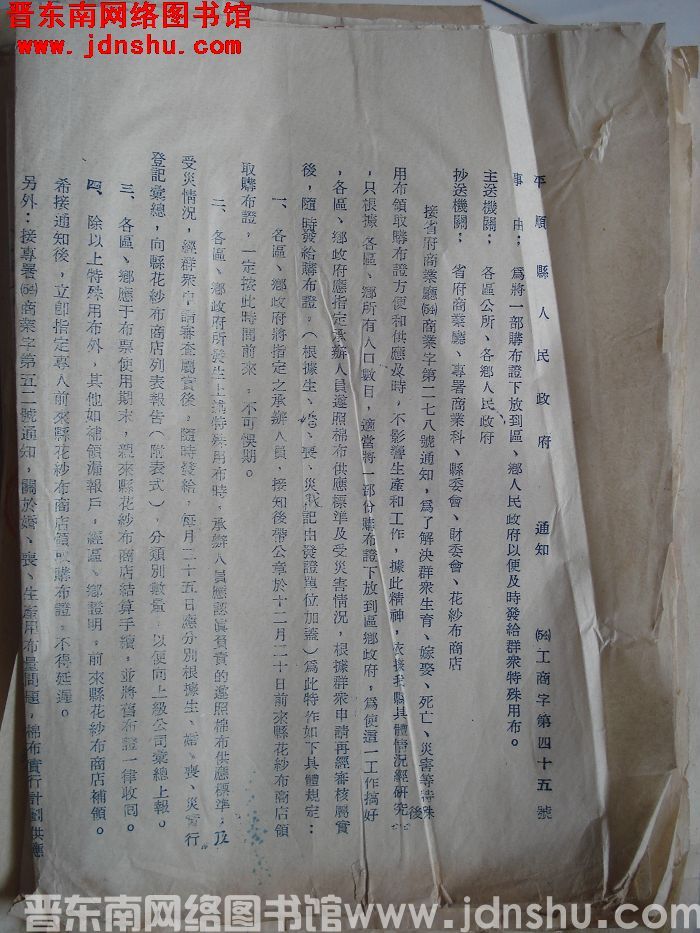 晋东南网络图书馆
www.jdnshu.com
平順縣人民政府 通知 (54)工商字第四十五號
事由：為將一部購布證下放到區、鄉人民政府以便及時發給群衆特殊用布。
主送機關：各區公所、各鄉人民政府
抄送機關：省府商業廳、專署商業科、縣委會、財委會、花紗布商店
接省府商業廳(54)商業字第二七八號通知，為了解決群衆生育、嫁娶、死亡、災害等特殊
用布領取購布證方便和供應及時，不影響生產和工作，據此精神，依據我縣具體情況經研究後
，只根據各區、鄉所有人口數目，適當將一部份購布證下放到區鄉政府，為使這一工作搞好
，各區、鄉政府應指定承辦人員遵照棉布供應標準及受災害情況，根據群衆申請再經審核屬實
後，隨時發給購布證。（根據生、婚、喪、災戳記由發證單位加蓋）為此特作如下具體規定：
一、各區、鄉政府將指定之承辦人員，接知後帶公章於十二月二十日前來縣花紗布商店領
取購布證，一定按此時間前來，不可悞期。
二、各區、鄉政府所發生上述特殊用布時，承辦人員應認眞負責的遵照棉布供應標準，及
受災情況，經群衆申請審查屬實後，隨時發給，每月二十五日應分別根據生、婚、喪、災實行
登記彙總，向縣花紗布商店列表報告（附表式），分類別數量，以便向上級公司彙總上報。
三、各區、鄉應于布票使用期末，親來縣花紗布商店結算手續，並將舊布證一律收回。
四、除以上特殊用布外，其他如補領漏報戶，經區、鄉證明，前來縣花紗布商店補領。
希接通知後，立即指定專人前來縣花紗布商店領取購布證，不得延遲。
另外：接專署(54)商業字第五二號通知，關於婚、喪、生產用布量問題，棉布實行計劃供應
晋东南网络图书馆 www.jdnshu.com